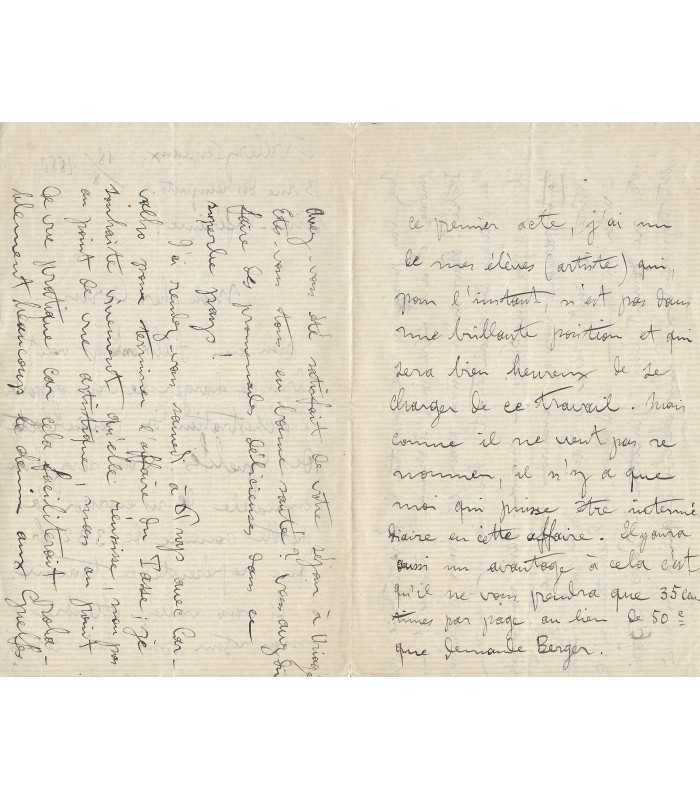 ce premier acte, j'ai un
de mes élèves (artiste) qui,
pour l'instant, n'est pas dans
une brillante position et qui
sera bien heureux de se
charger de ce travail. Mais
comme il ne veut pas se
nommer, il n'y a que
moi qui puisse être intermé
diaire en cette affaire. Il y aura
aussi un avantage à cela c'est
qu'il ne vous prendra que 35 cen
times par page au lieu de 50 c.
que demande Berger.
Avez-vous été satisfait de votre séjour à Uriage
Etes-vous tous en bonne santé? Vous avez dû
faire des promenades délicieuses dans ce
superbe pays!
J'ai rendez-vous samedi à avec Car-
valho pour terminer l'affaire du Tasse; je
souhaite vivement qu'elle réussisse, non pas
au point de vue artistique, mais au point
de vue pratique car cela faciliterait proba-
blement beaucoup la demi aux Guelfes.